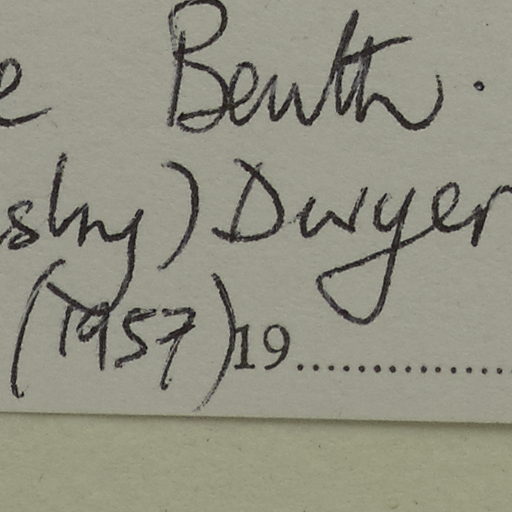 e Benth.
sby) Dwyer
(1957) 19..................